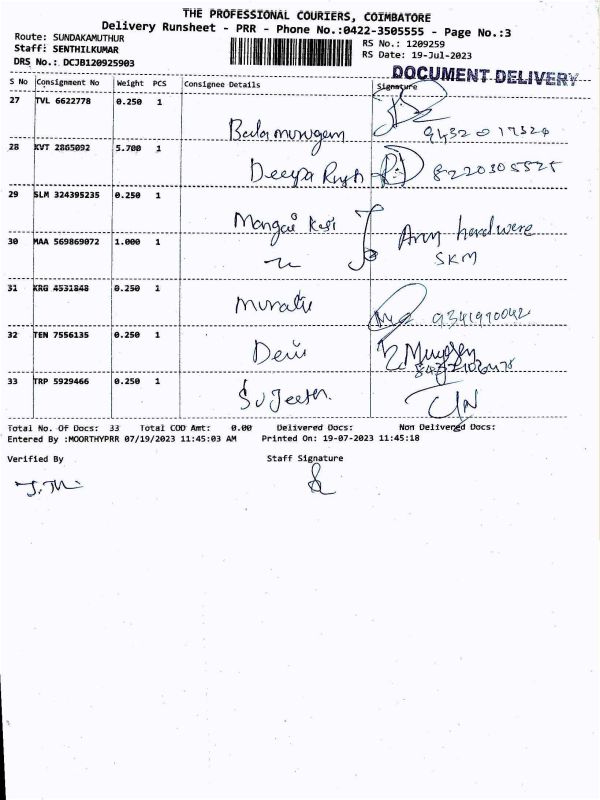 THE PROFESSIONAL COURIERS, COIMBATORE
Delivery Runsheet - PRR - Phone No.:0422-3505555 - Page No.:3
Route: SUNDAKAMUTHUR
Staff: SENTHILKUMAR
DRS No.: DCJB120925903
RS No.: 1209259
RS Date: 19-Jul-2023
DOCUMENT DELIVERY
S No Consignment No Weight PCS Consignee Details Signature
27 TVL 6622778 0.250 1
Balamurugan 9432017324
28 KVT 2865092 5.700 1
Deepa 8220305525
29 SLM 324395235 0.250 1
Mangai
30 MAA 569869072 1.000 1
hardware
SKM
31 KRG 4531848 0.250 1
9341970042
32 TEN 7556135 0.250 1
Devi
33 TRP 5929466 0.250 1
Sujeeth.
Total No. Of Docs: 33 Total COD Amt: 0.00 Delivered Docs: Non Delivered Docs:
Entered By :MOORTHYPRR 07/19/2023 11:45:03 AM Printed On: 19-07-2023 11:45:18
Verified By Staff Signature